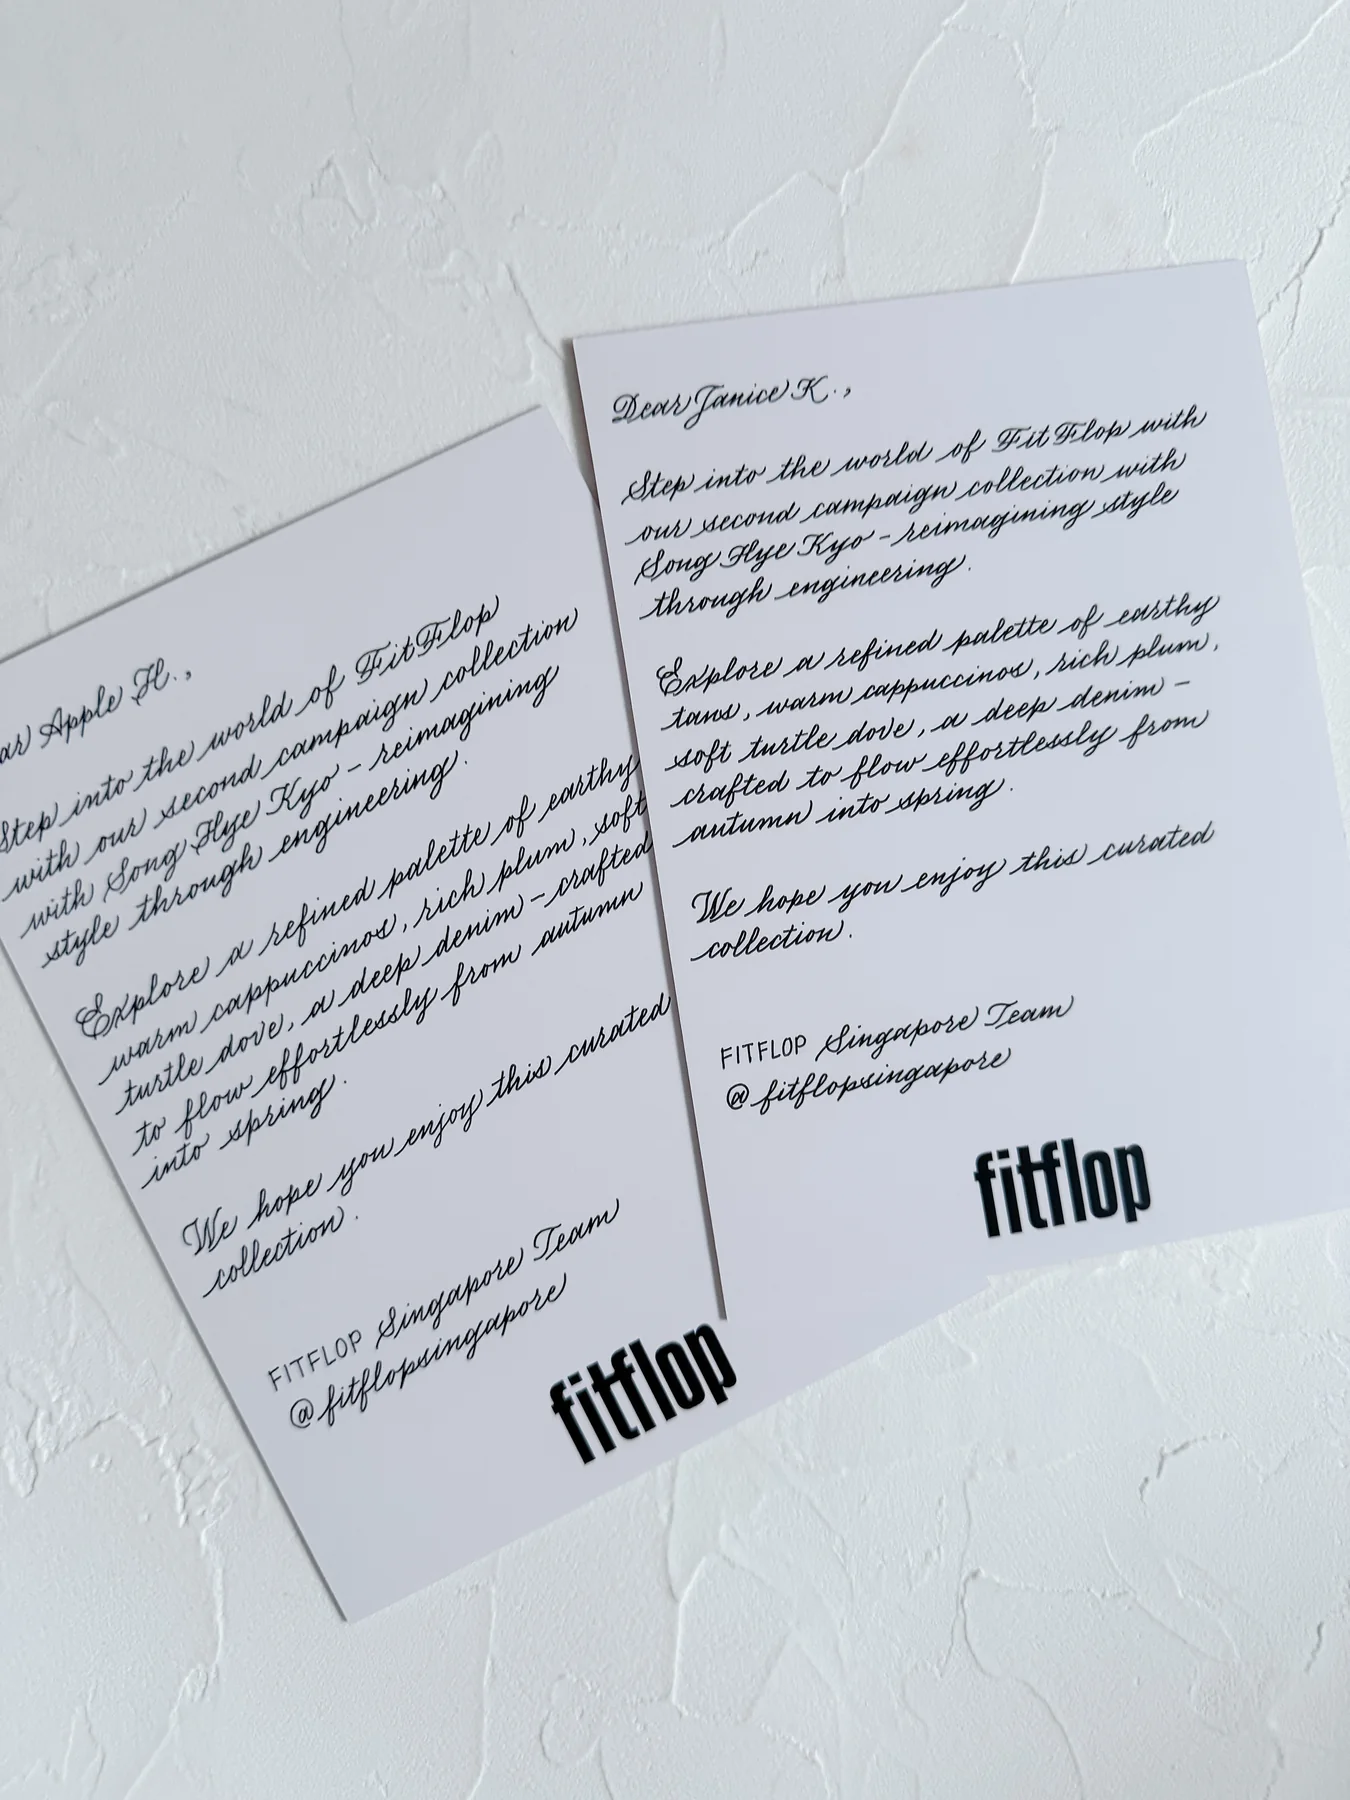 ar Apple H.,
Step into the world of FitFlop
with our second campaign collection
with Song Hye Kyo - reimagining
style through engineering.
Explore a refined palette of earthy
warm cappuccinos, rich plum, soft
turtle dove, a deep denim - crafted
to flow effortlessly from autumn
into spring.
We hope you enjoy this curated
collection.
FITFLOP Singapore Team
@fitflopsingapore
fitflop
Dear Janice K.,
Step into the world of FitFlop with
our second campaign collection with
Song Hye Kyo - reimagining style
through engineering.
Explore a refined palette of earthy
tans, warm cappuccinos, rich plum,
soft turtle dove, a deep denim -
crafted to flow effortlessly from
autumn into spring.
We hope you enjoy this curated
collection.
FITFLOP Singapore Team
@fitflopsingapore
fitflop